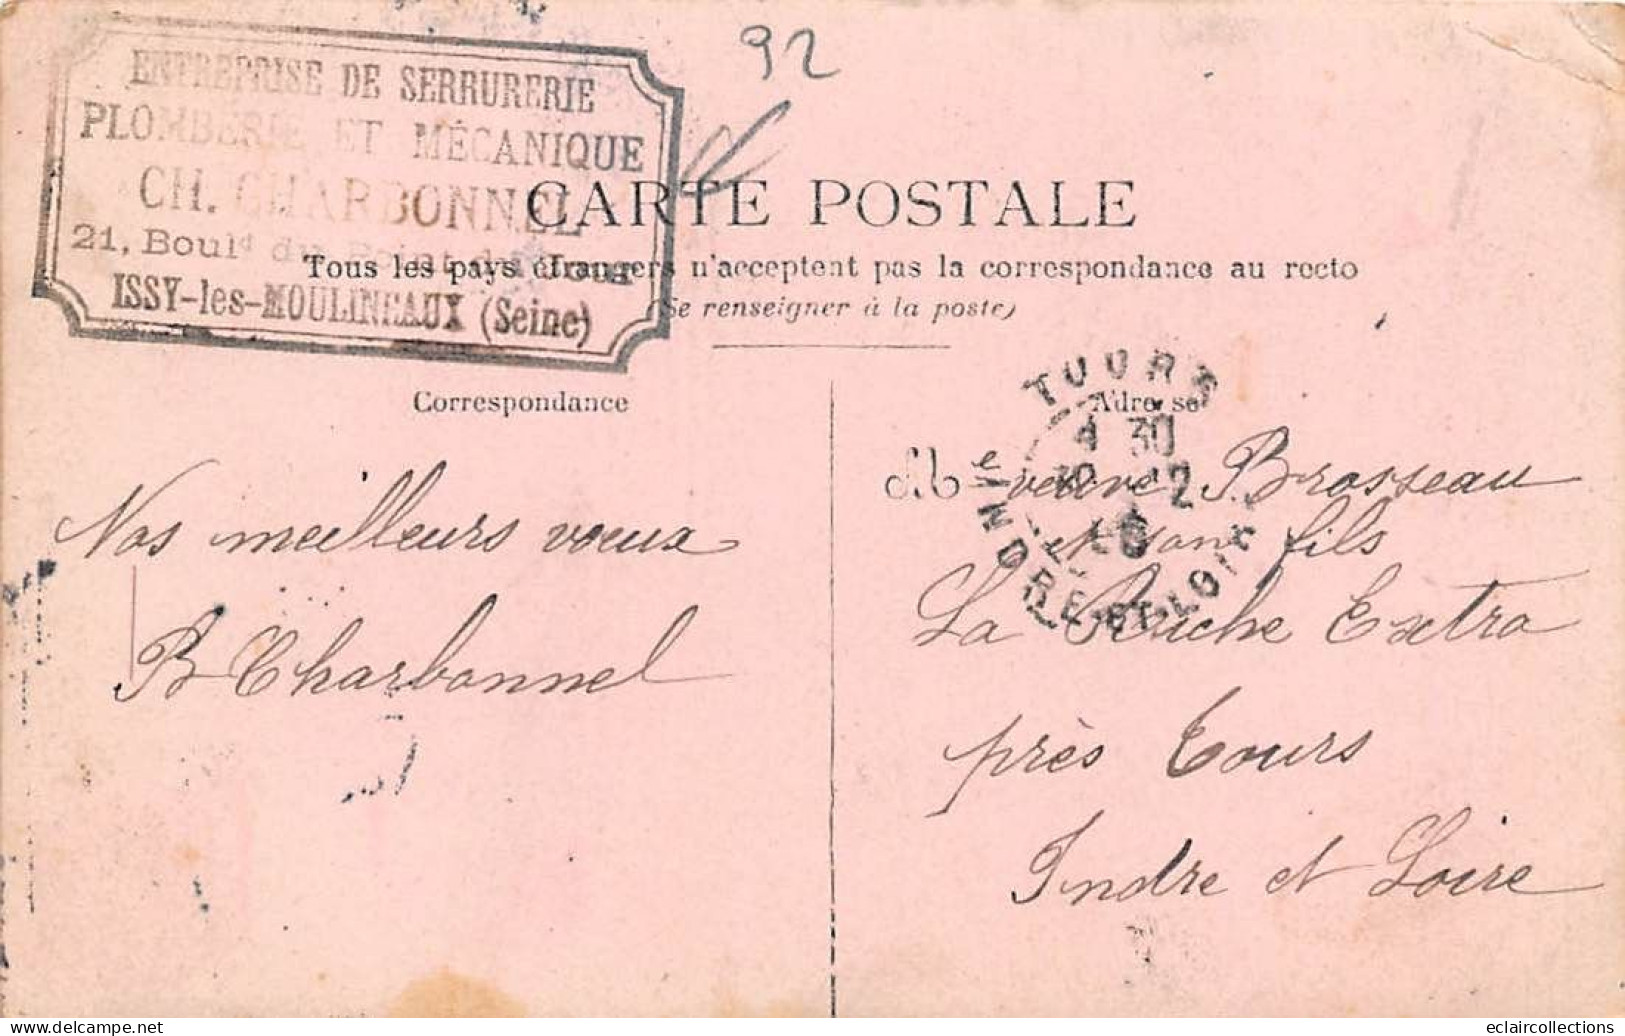 92
ENTREPRISE DE SERRURERIE
PLOMBERIE ET MÉCANIQUE
CH. CHARBONNEL
21, Boulᵈ du Point du Jour
ISSY-les-MOULINEAUX (Seine)
CARTE POSTALE
Tous les pays étrangers n'acceptent pas la correspondance au recto
(Se renseigner à la poste)
Correspondance
Nos meilleurs voeux
B Charbonnel
Adresse
TOURS
4 30
INDRE-ET-LOIRE
Mᵉ veuve Brosseau
et son fils
La Ruche Extra
près Tours
Indre et Loire
eclaircollections
delcampe.net